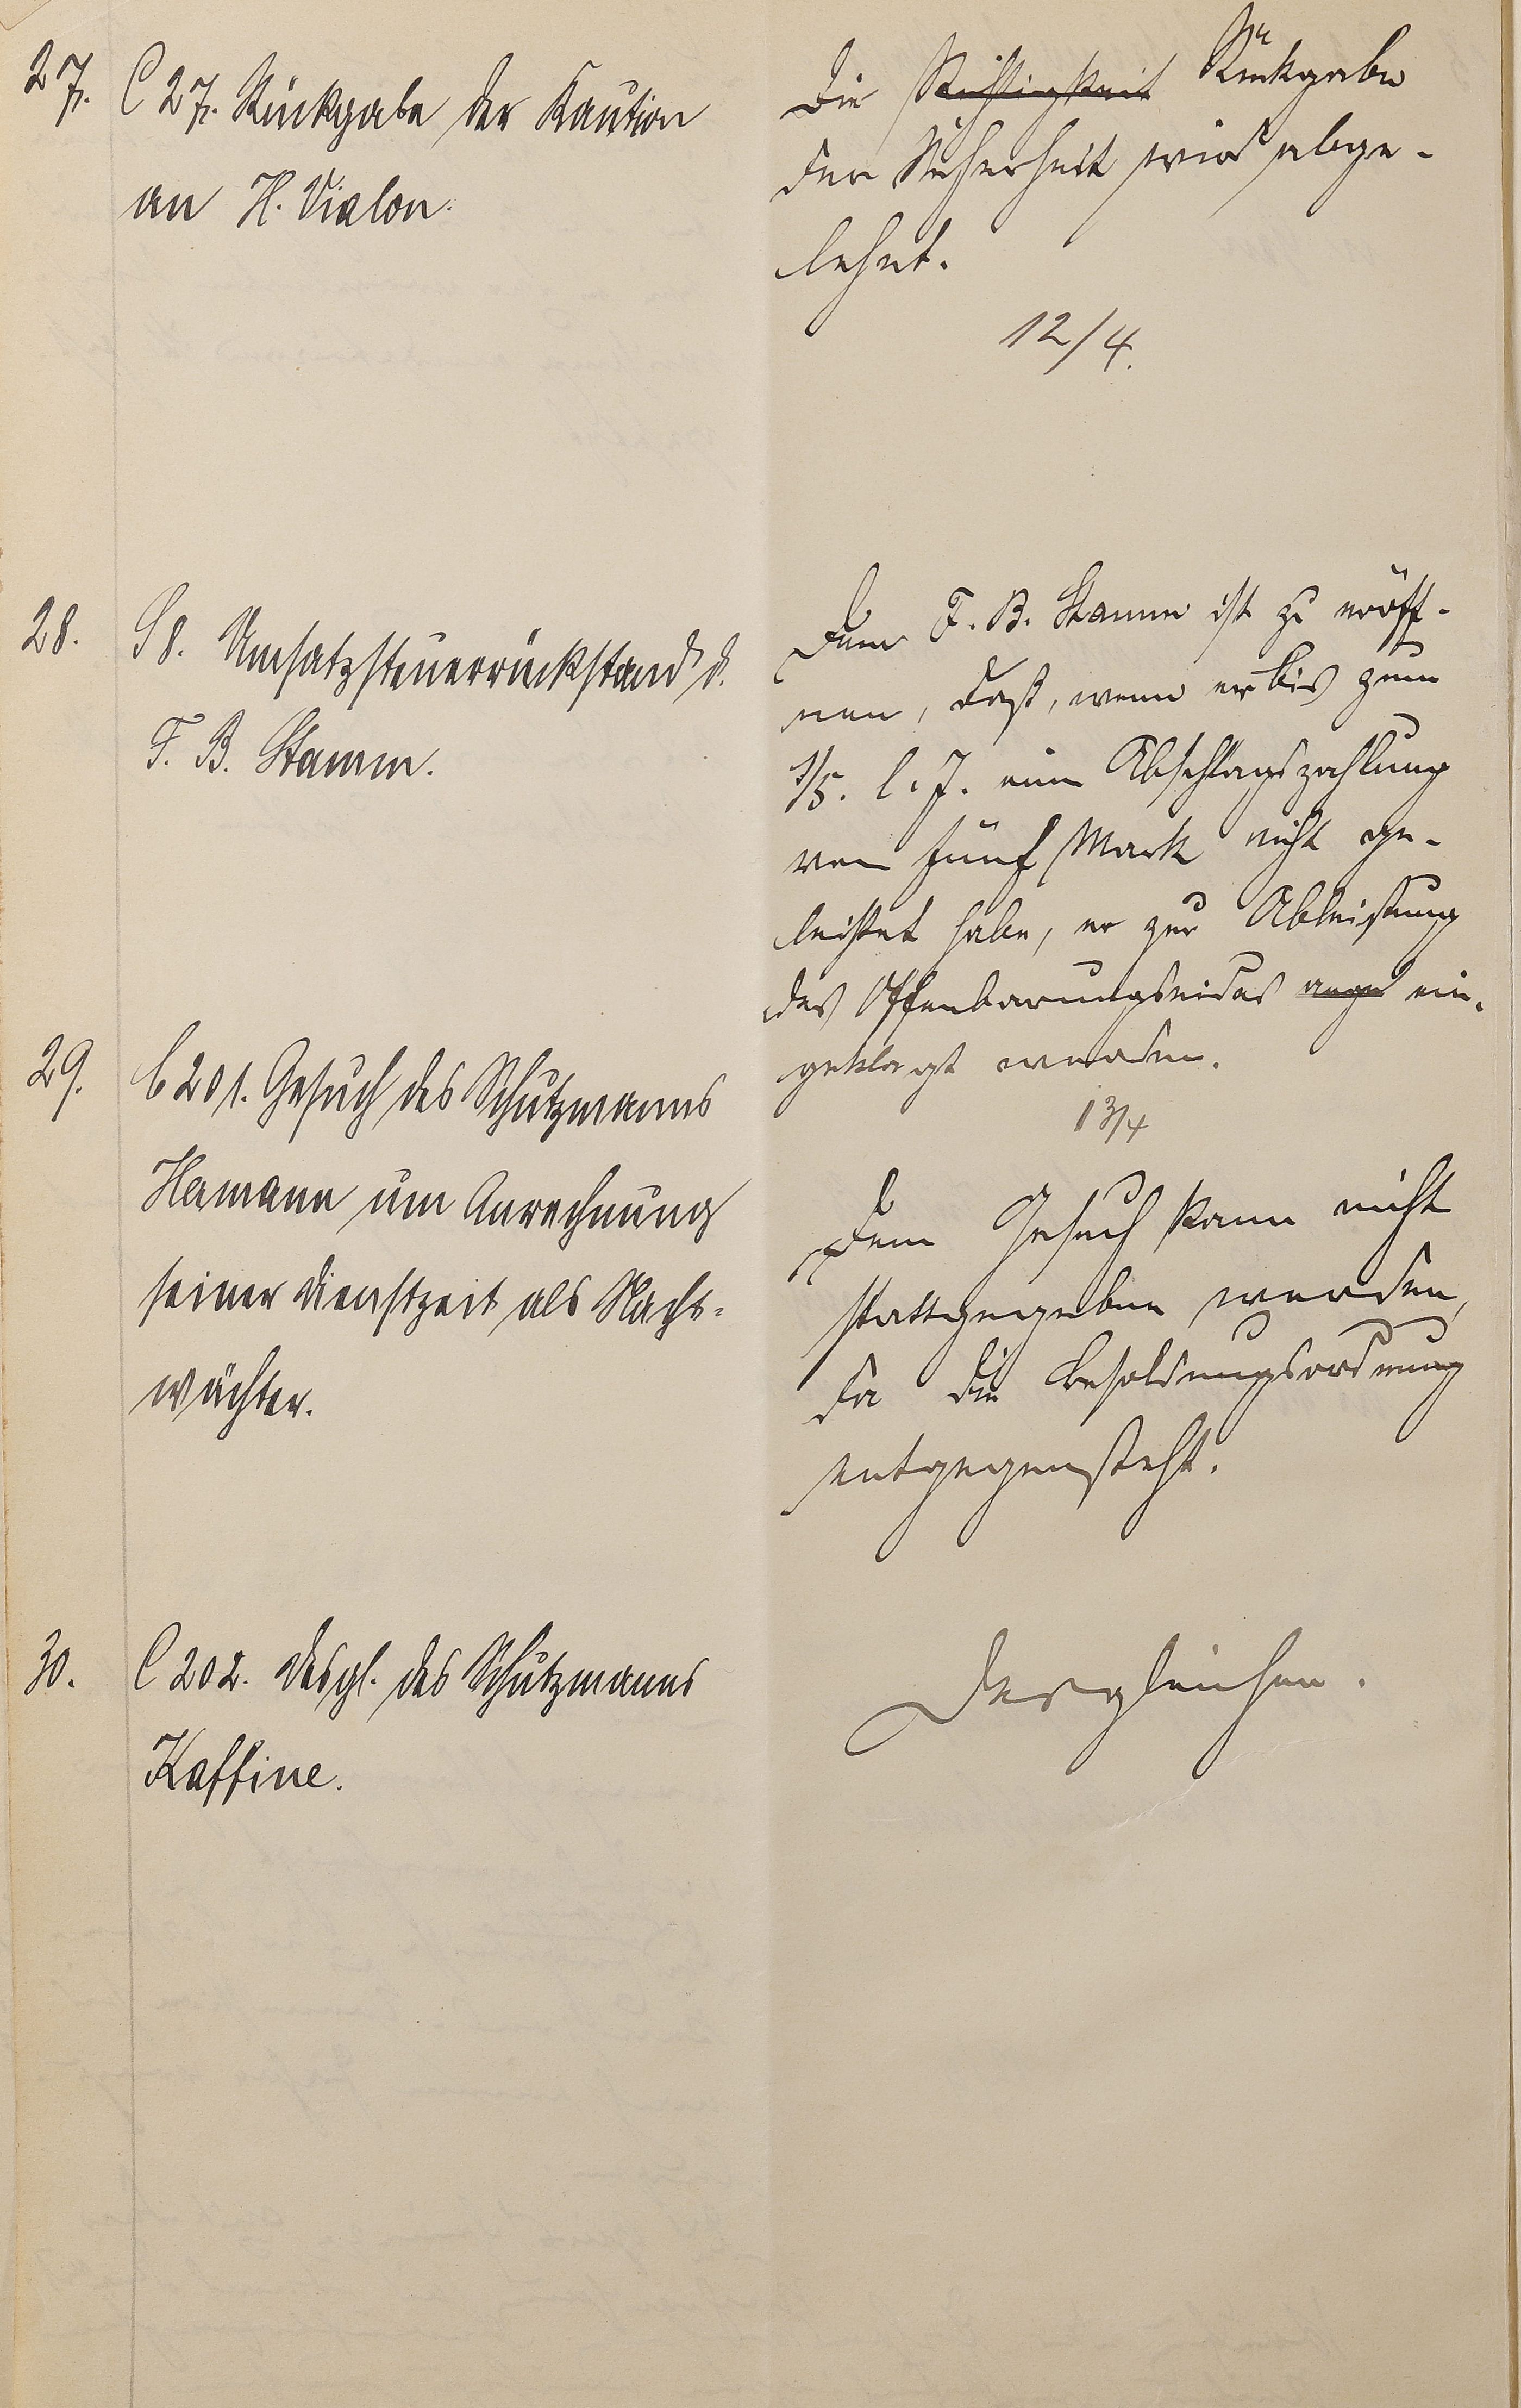 27.
C 27. Rückgabe der Kaution
an H. Vialon.
Die Rückgabe
der Sicherheit wird abge-
lehnt.
12/4.
28.
S 8. Umsatzsteuerrückstand d.
F. B. Stamm.
Dem F. B. Stamm ist zu eröff-
nen, daß, wenn er bis zum
1/5. l. J. eine Abschlagszahlung
von fünf Mark nicht ge-
leistet habe, er zur Ableistung
des Offenbarungseides ange ein-
geklagt werden.
13/4
29.
C 201. Gesuch des Schutzmanns
Hamann um Anrechnung
seiner Dienstzeit als Nacht-
wächter.
Dem Gesuch kann nicht
stattgegeben werden,
da die Besoldungsordnung
entgegensteht.
30.
C 202. Desgl. des Schutzmanns
Kaffine.
Desgleichen.